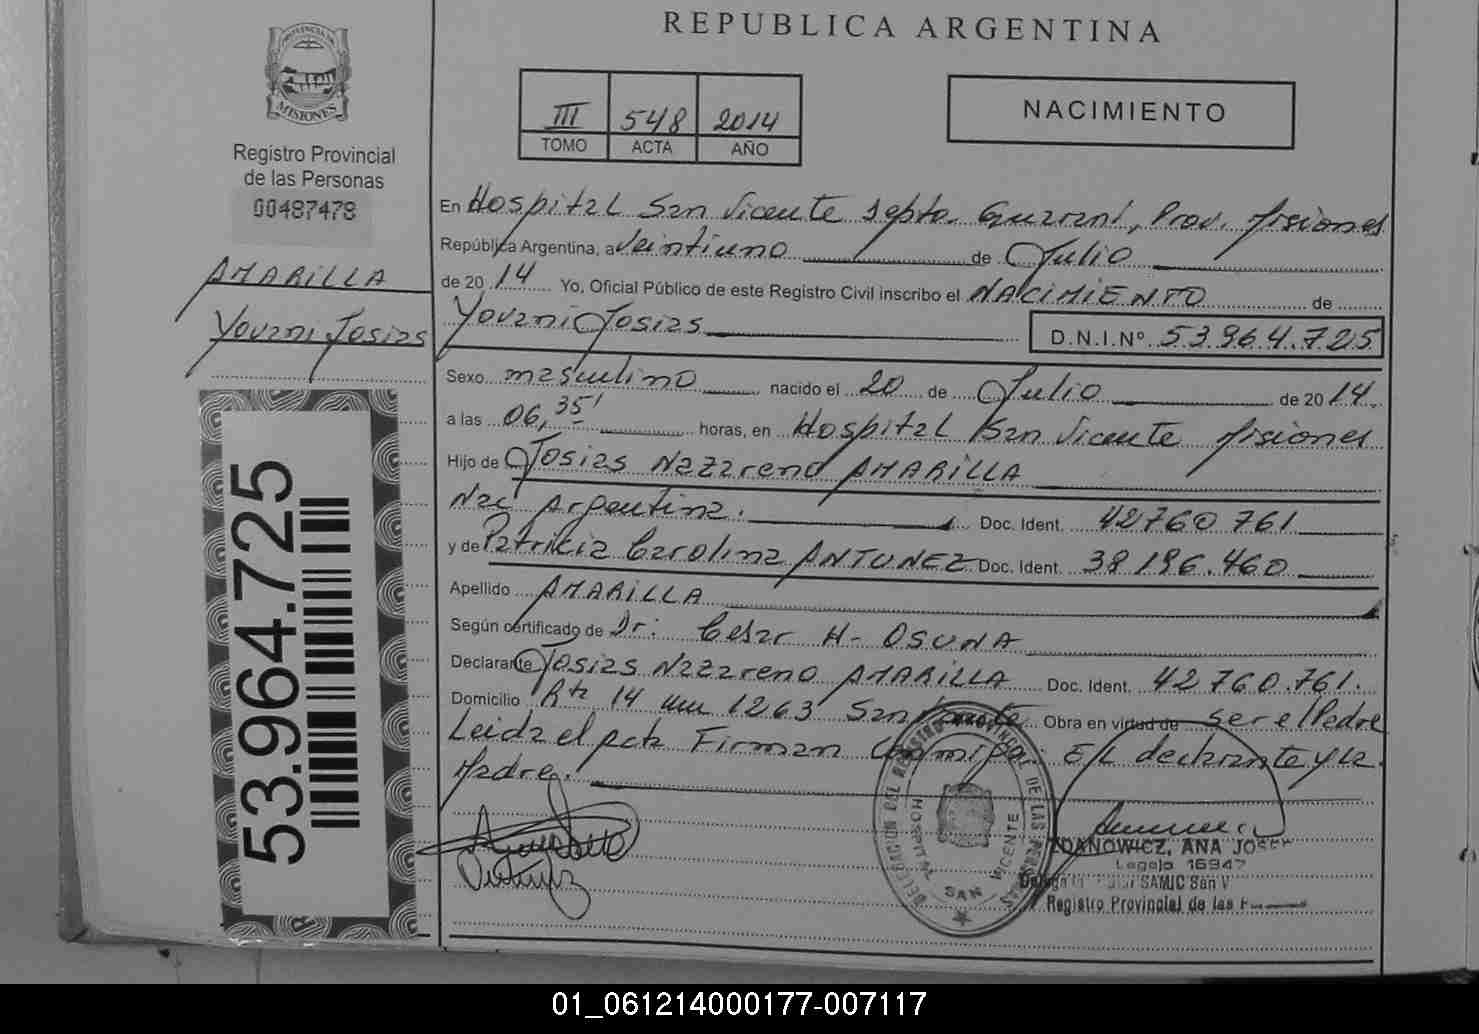 REPUBLICA ARGENTINA
PROVINCIA DE
MISIONES
Registro Provincial
de las Personas
00487478
AMARILLA
Yovani Josias
53.964.725
III 548 2014
TOMO ACTA AÑO
NACIMIENTO
En Hospital San Vicente Depto. Guarani, Prov. Misiones
República Argentina, a Veintiuno de Julio
de 2014 Yo, Oficial Público de este Registro Civil inscribo el NACIMIENTO de
Yovani Josias D.N.I.Nº 53.964.725
Sexo masculino nacido el 20 de Julio de 2014.
a las 06,35' horas, en Hospital San Vicente Misiones
Hijo de Josias Nazareno AMARILLA
Nac Argentina. Doc. Ident. 42760 761
y de Patricia Carolina ANTUNEZ Doc. Ident. 38 196.460
Apellido AMARILLA
Según certificado de Dr. Cesar H- OSUNA
Declarante Josias Nazareno AMARILLA Doc. Ident. 42 760.761.
Domicilio Rta 14 km 1263 San Vicente Obra en virtud de ser el Padre
Leida el acta Firman Conmigo: E/L declarante y la
Madre.
DELEGACION DEL REGISTRO PROVINCIAL DE LAS PERSONAS
HOSPITAL
SAN VICENTE
ZDANOWICZ, ANA JOSE
Legajo 16947
SAMIC San V
Registro Provincial de las P
01_061214000177-007117